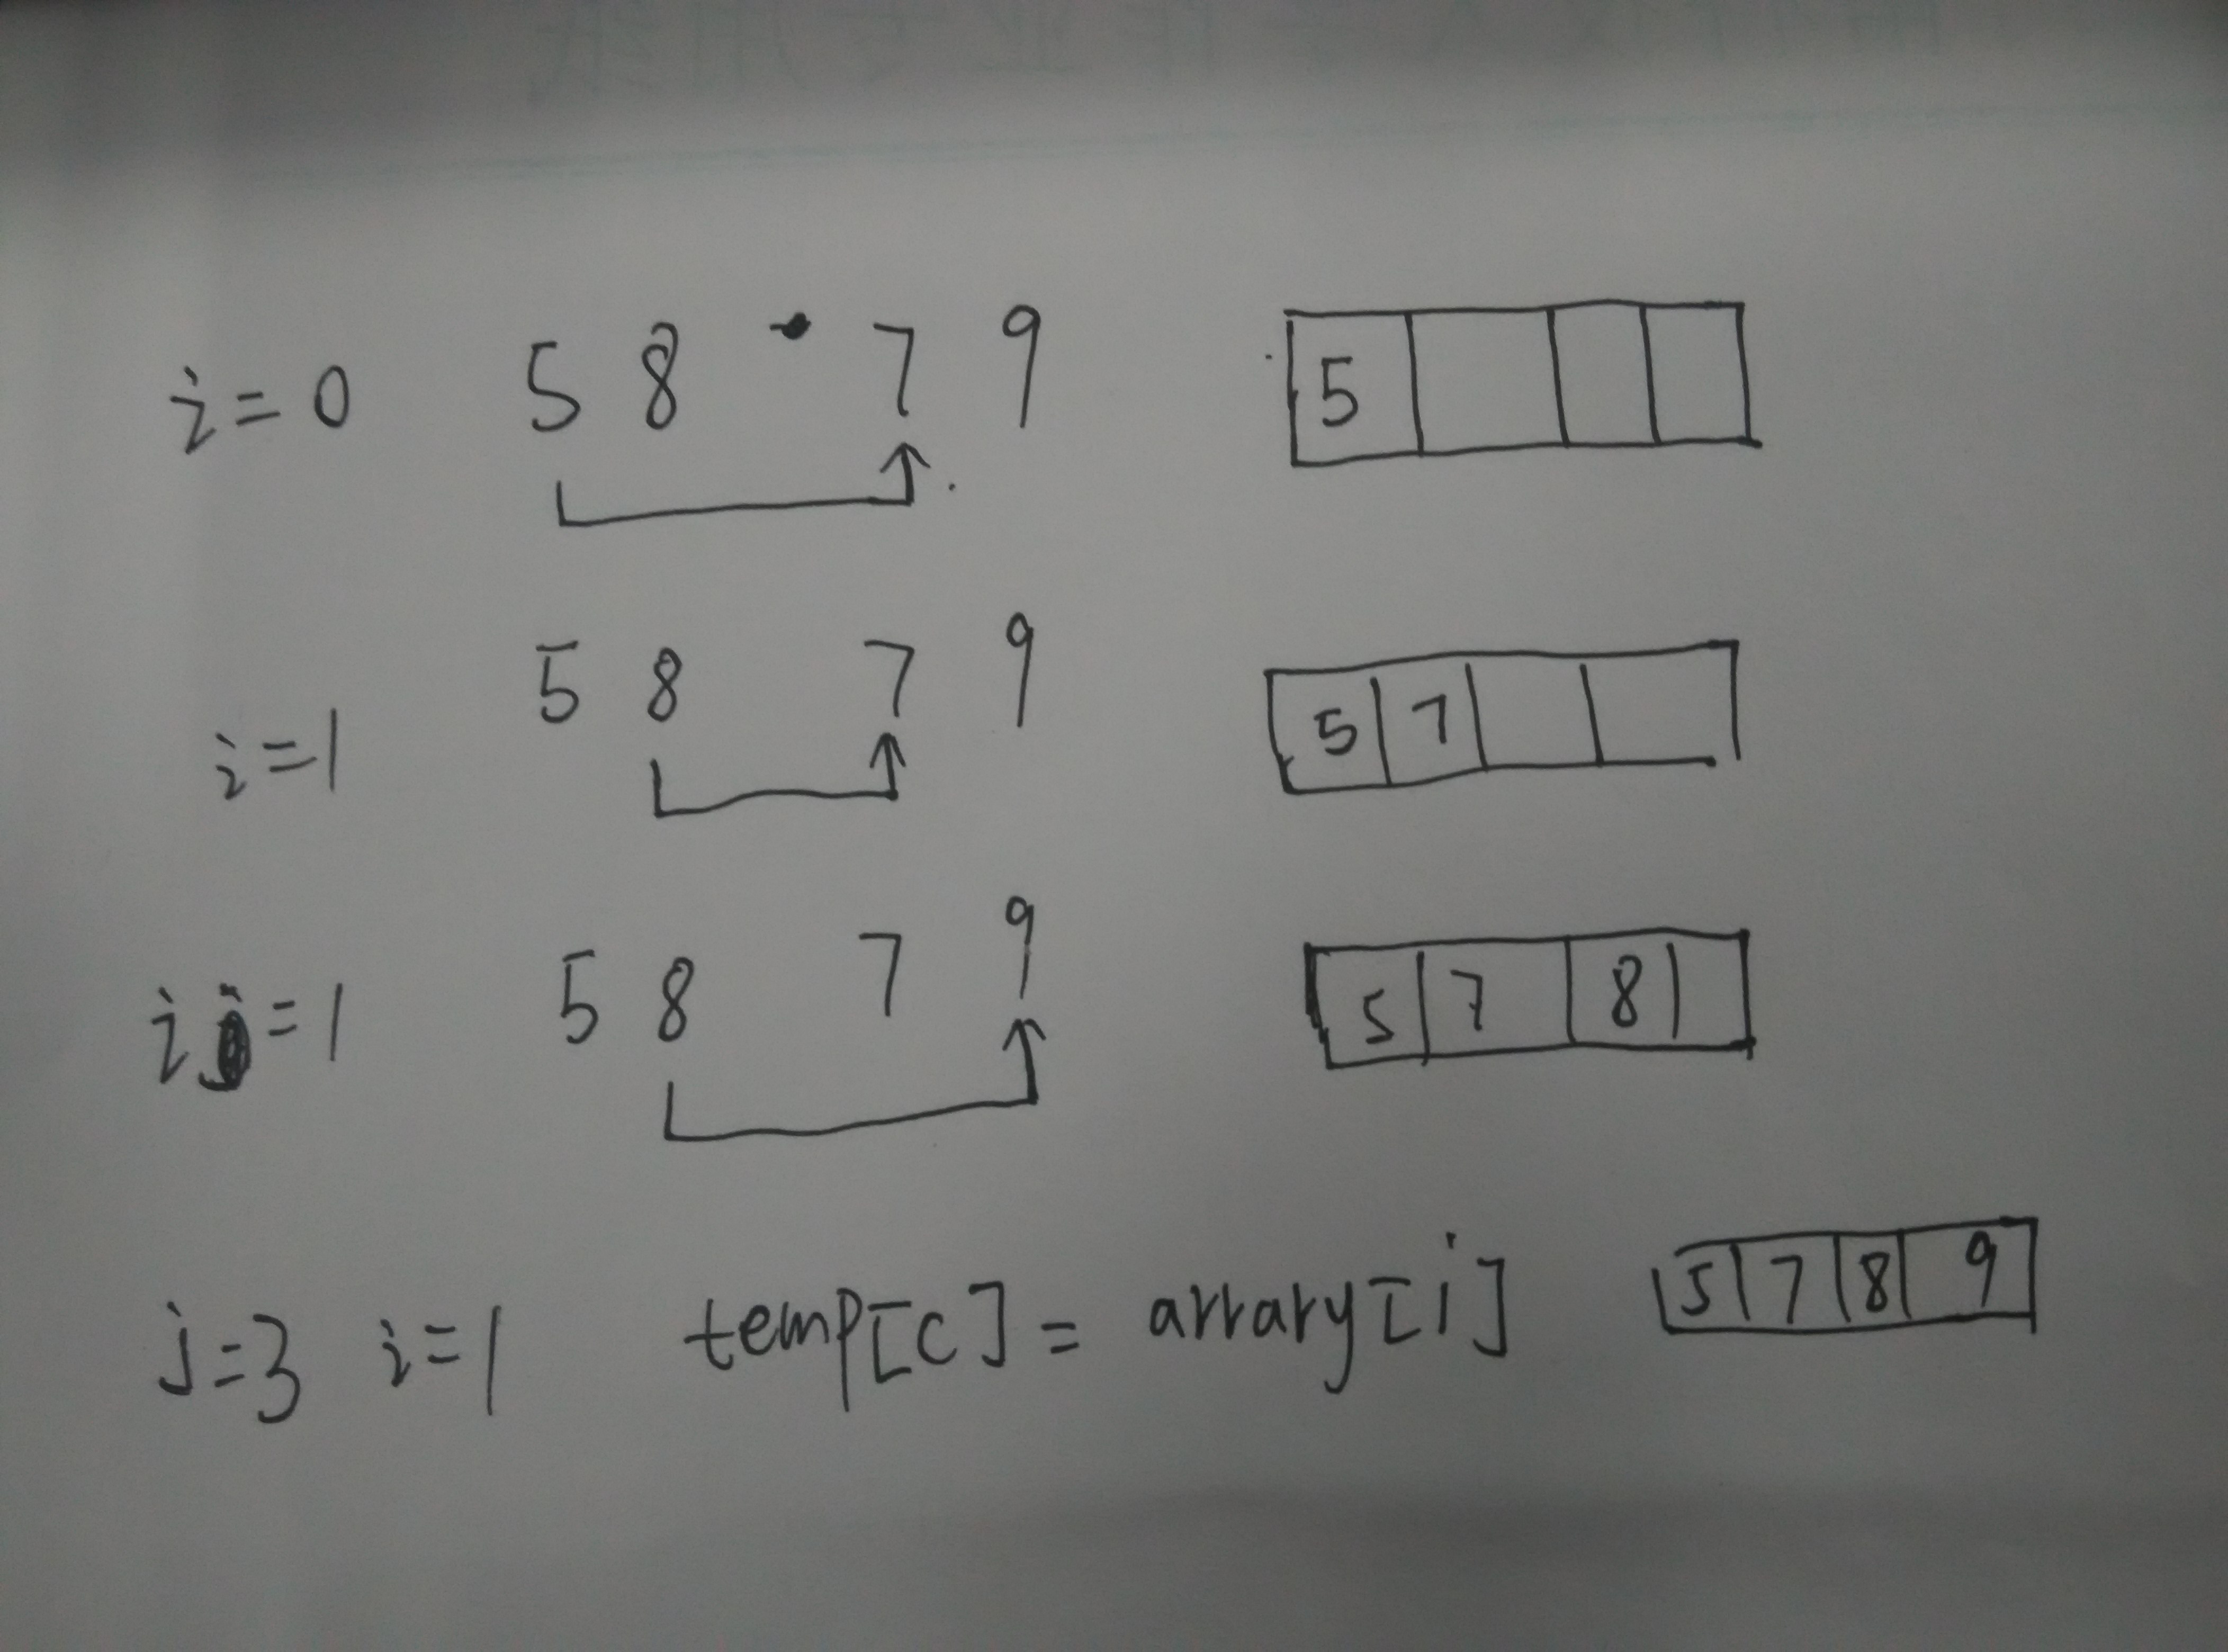 i=0 5 8 7 9 5
i=1 5 8 7 9 5 7
i =1 5 8 7 9 5 7 8
j=3 i=1 temp[c]= arrary[i] 5 7 8 9